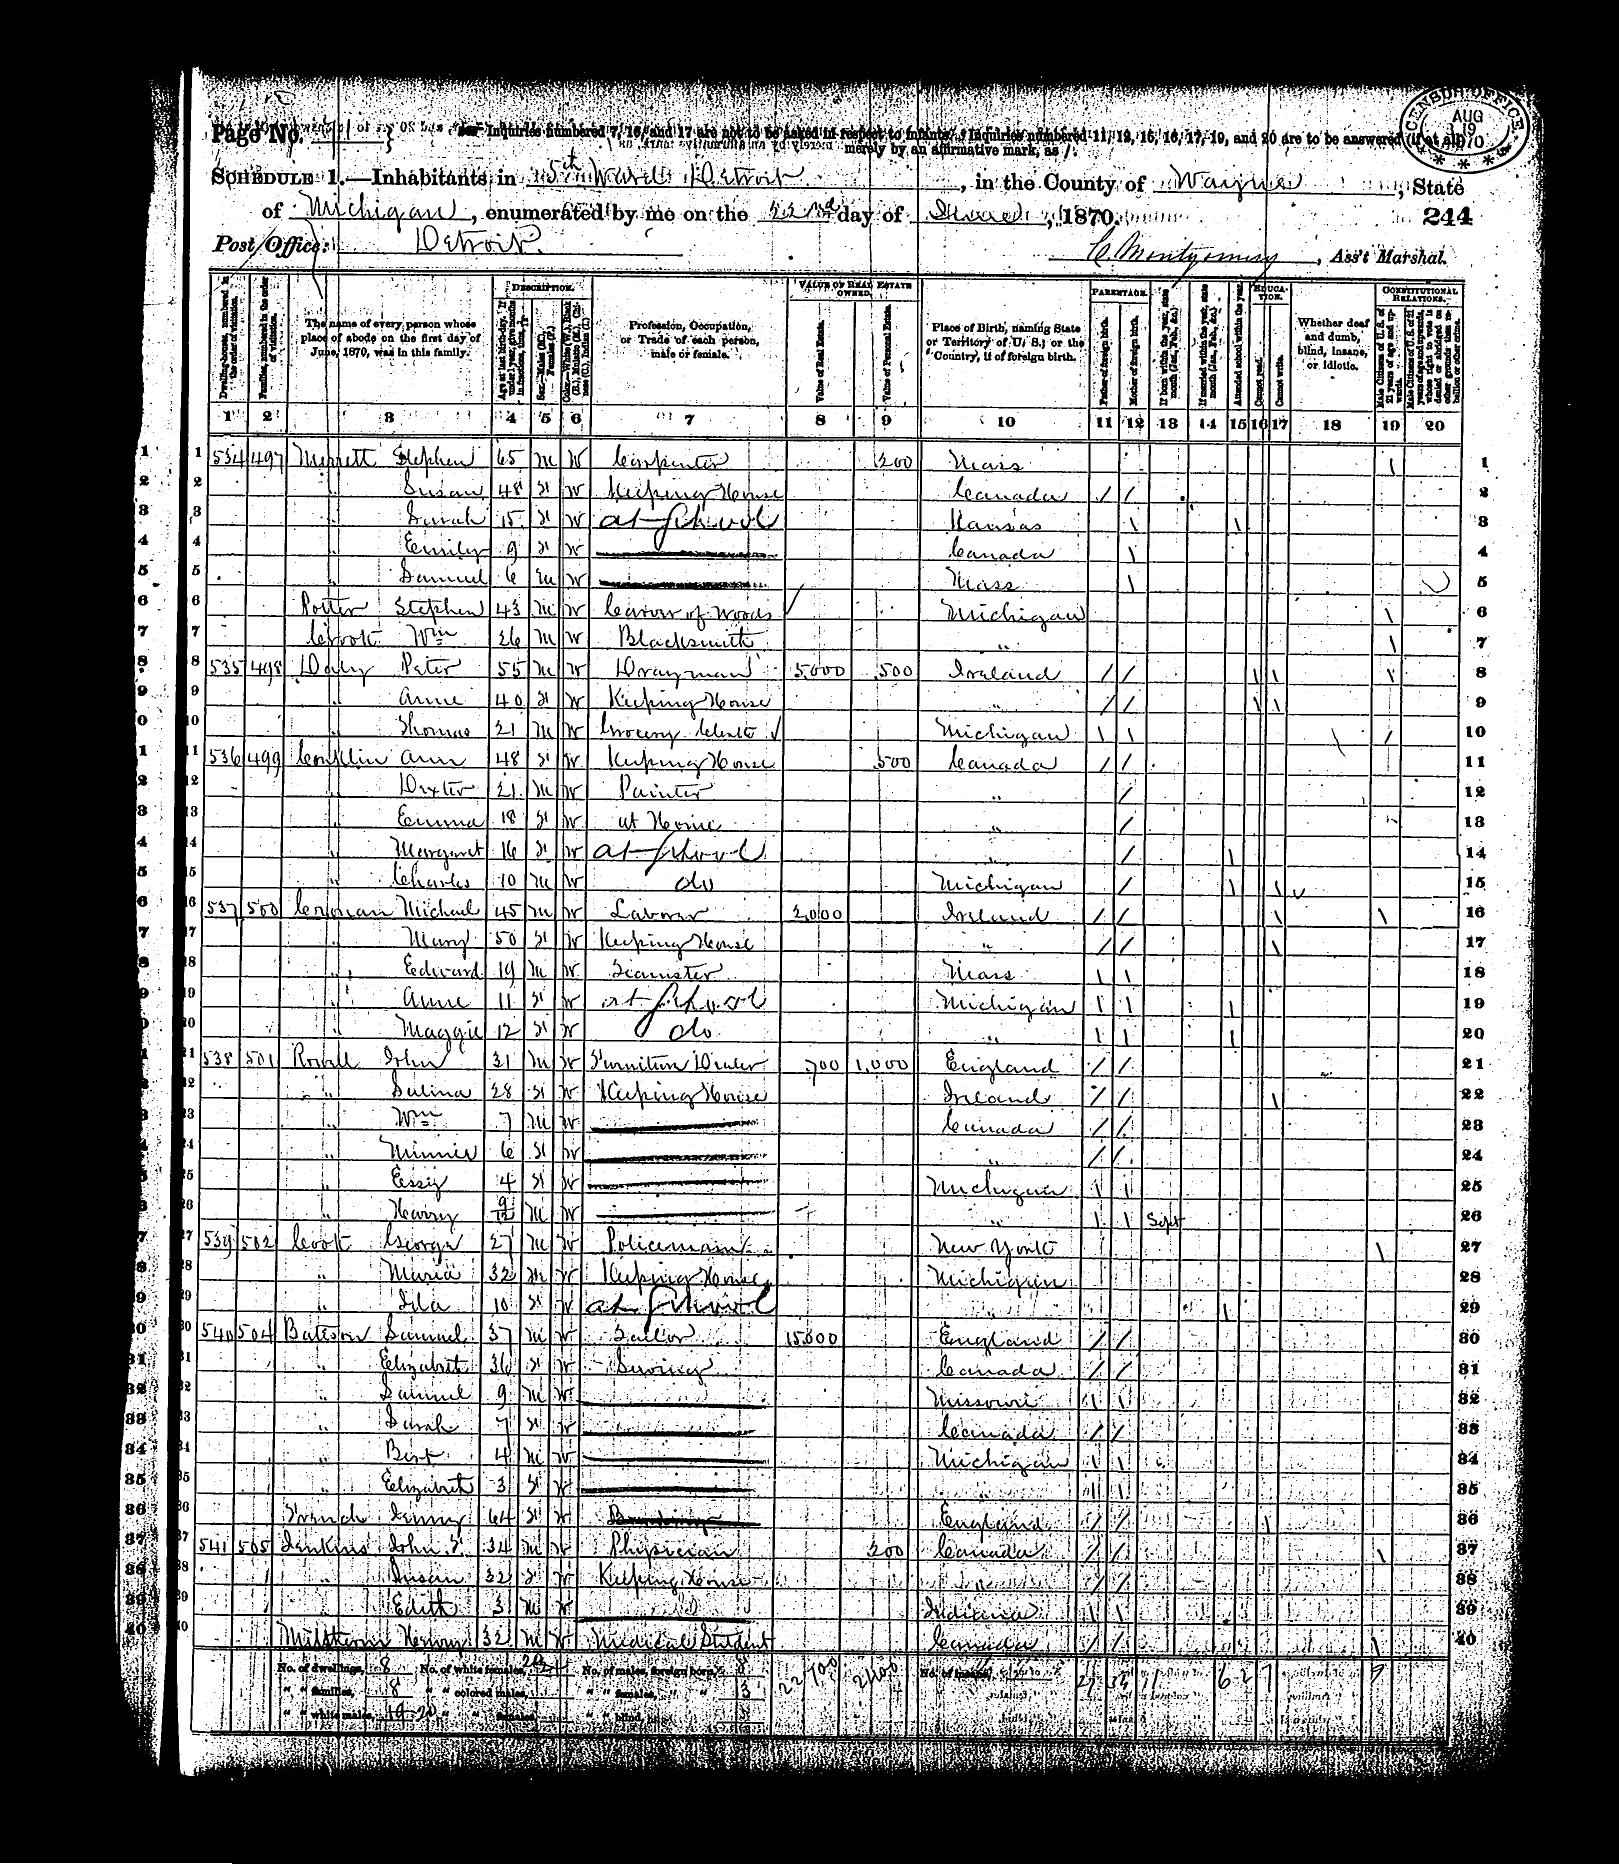 Page No.
Inquiries numbered 7, 16, and 17 are not to be asked in respect to infants. Inquiries numbered 11, 12, 15, 16, 17, 19, and 20 are to be answered (if at all)
merely by an affirmative mark, as /.
CENSUS OFFICE AUG 19 1870
SCHEDULE 1.—Inhabitants in 5th Ward Detroit, in the County of Wayne, State
of Michigan, enumerated by me on the 22nd day of June, 1870. 244
Post Office: Detroit. C. Montgomery, Ass't Marshal.
DESCRIPTION. VALUE OF REAL ESTATE OWNED. PARENTAGE. EDUCATION. CONSTITUTIONAL RELATIONS.
Dwelling-houses, numbered in the order of visitation.
Families, numbered in the order of visitation.
The name of every person whose place of abode on the first day of June, 1870, was in this family.
Age at last birth-day. If under 1 year, give months in fractions, thus,
Sex.—Males (M.), Females (F.)
Color.—White (W.), Black (B.), Mulatto (M.), Chinese (C.), Indian (I.)
Profession, Occupation, or Trade of each person, male or female.
Value of Real Estate.
Value of Personal Estate.
Place of Birth, naming State or Territory of U. S.; or the Country, if of foreign birth.
Father of foreign birth.
Mother of foreign birth.
If born within the year, state month (Jan., Feb., &c.)
If married within the year, state month (Jan., Feb., &c.)
Attended school within the year.
Cannot read.
Cannot write.
Whether deaf and dumb, blind, insane, or idiotic.
Male Citizens of U. S. of 21 years of age and upwards.
Male Citizens of U. S. of 21 years of age and upwards, whose right to vote is denied or abridged on other grounds than rebellion or other crime.
1 2 3 4 5 6 7 8 9 10 11 12 13 14 15 16 17 18 19 20
1 534 497 Merrett Stephen 65 M W Carpenter 200 Mass / 1
2 " Susan 48 F W Keeping House Canada / / 2
3 " Sarah 15 F W at School Kansas / / 3
4 " Emily 9 F W Canada / 4
5 " Samuel 6 M W Mass / 5
6 Porter Stephen 43 M W Carver of Woods Michigan / 6
7 Crook Wm 26 M W Blacksmith " / 7
8 535 498 Daly Peter 55 M W Drayman 5,000 500 Ireland / / / / / 8
9 " Anne 40 F W Keeping House " / / / / 9
10 " Thomas 21 M W Grocery Clerk Michigan / / / 10
11 536 499 Conklin Ann 48 F W Keeping House 500 Canada / / 11
12 " Dexter 21 M W Painter " / 12
13 " Emma 18 F W at Home " / 13
14 " Margaret 16 F W at School " / / 14
15 " Charles 10 M W do Michigan / / / 15
16 537 500 Cronan Michael 45 M W Laborer 2,000 Ireland / / / / 16
17 " Mary 50 F W Keeping House " / / / 17
18 " Edward 19 M W Teamster Mass / / 18
19 " Anne 11 F W at School Michigan / / / 19
20 " Maggie 12 F W do " / / / 20
21 538 501 Rowell John 31 M W Furniture Dealer 700 1,000 England / / 21
22 " Salina 28 F W Keeping House Ireland / / / 22
23 " Wm 7 M W Canada / / 23
24 " Minnie 6 F W " / / 24
25 " Essiy 4 F W Michigan / / 25
26 " Harry 9/12 M W " / / Sept 26
27 539 502 Cook George 27 M W Policeman New York / 27
28 " Maria 32 M W Keeping House Michigan 28
29 " Ida 10 F W at School " / 29
30 540 504 Bateson Samuel 37 M W Sailor 15,000 England / / 30
31 " Elizabeth 36 F W Canada / / 31
32 " Samuel 9 M W Missouri / / 32
33 " Sarah 7 F W Canada / / 33
34 " Bert 4 M W Michigan / / 34
35 " Elizabeth 3 F W " / / 35
36 French Jenny 64 F W England / / / 36
37 541 505 Jenkins John 34 M W Physician 200 Canada / / / 37
38 " Susan 32 F W Keeping House " / / 38
39 " Edith 3 M W Indiana / / 39
40 Henry 32 M W Medical Student Canada / / / 40
No. of dwellings, 8 No. of white females, No. of males, foreign born, 8 22700 No. of insane,
" " families, 8 " " colored males, " " females, " " 3
" " white males, 20 " " females, " " blind,